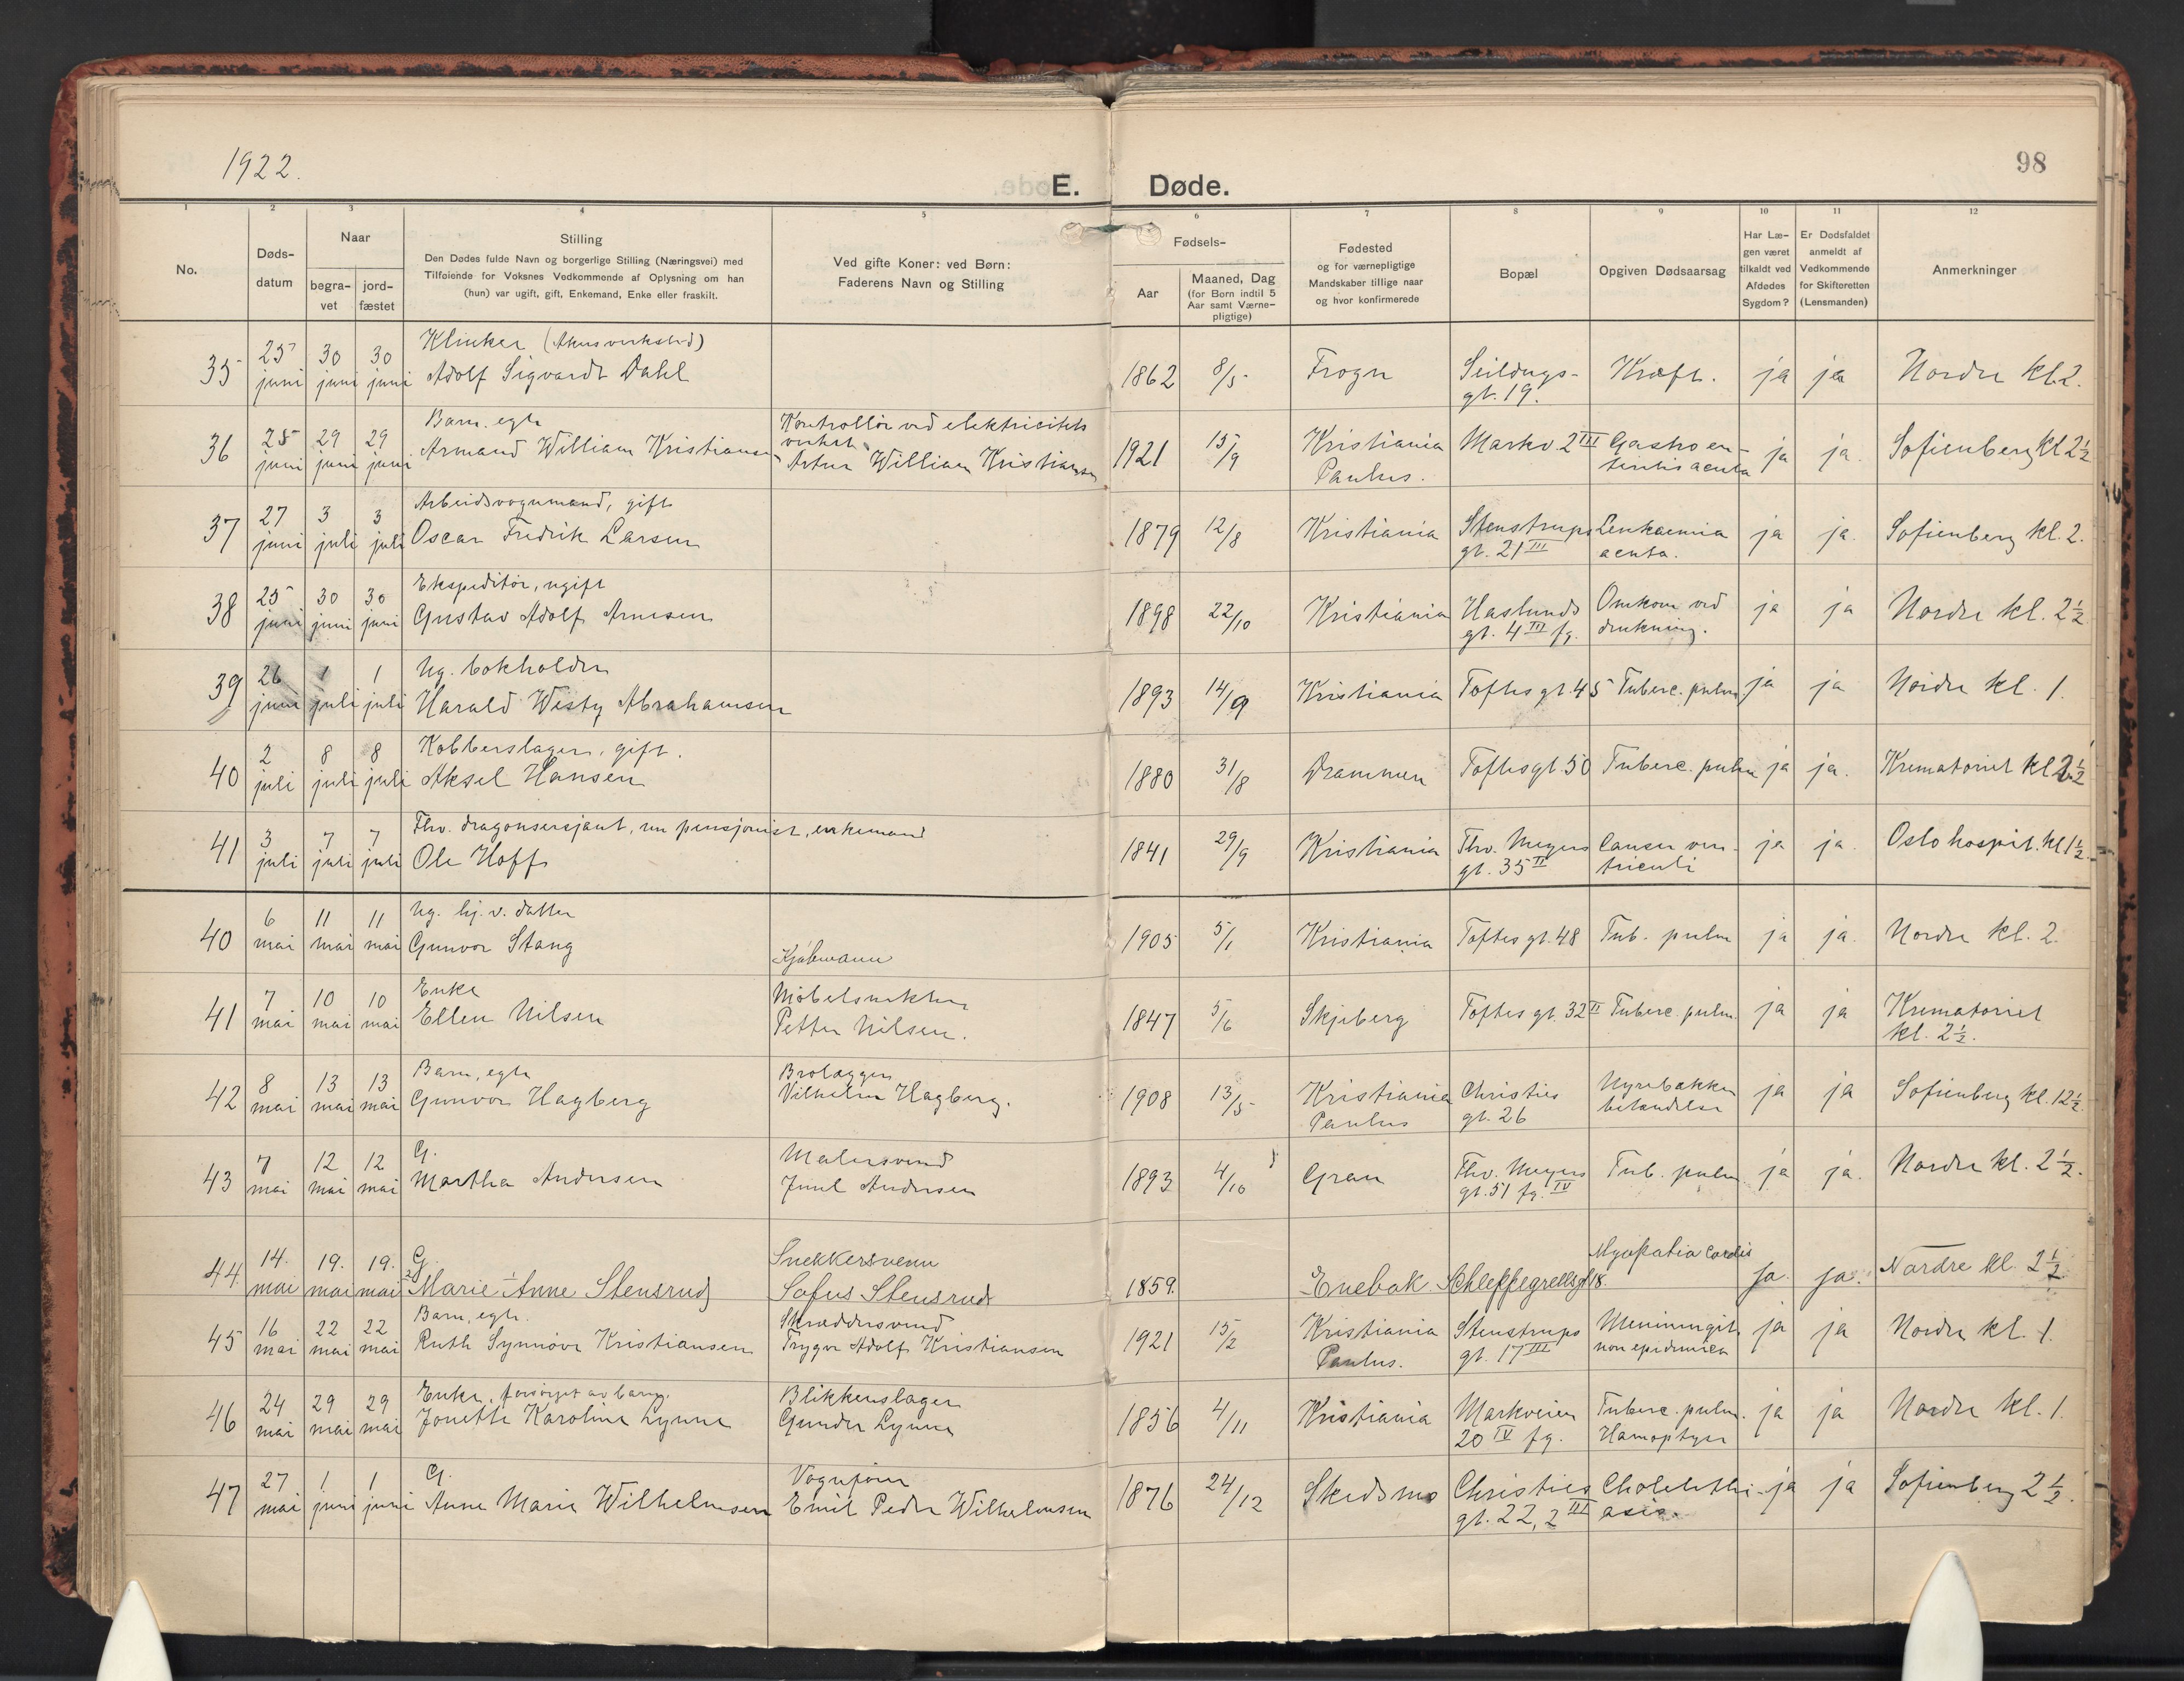 1922.
98
E. Døde.
1 2 3 4 5 6 7 8 9 10 11 12
No.
Døds-
datum
Naar
begra-
vet
jord-
fæstet
Stilling
Den Dødes fulde Navn og borgerlige Stilling (Næringsvei) med
Tilføiende for Voksnes Vedkommende af Oplysning om han
(hun) var ugift, gift, Enkemand, Enke eller fraskilt.
Ved gifte Koner: ved Børn:
Faderens Navn og Stilling
Fødsels-
Aar
Maaned, Dag
(for Børn indtil 5
Aar samt Værne-
pligtige)
Fødested
og for værnepligtige
Mandskaber tillige naar
og hvor konfirmerede
Bopæl
Opgiven Dødsaarsag
Har Læ-
gen været
tilkaldt ved
Afdødes
Sygdom?
Er Dødsfaldet
anmeldt af
Vedkommende
for Skifteretten
(Lensmanden)
Anmerkninger
Klinker (Akers verksted)
35 25 juni 30 juni 30 juni Adolf Sigvardt Dahl 1862 8/5 Frogn Seildugs- Kræft. ja ja Nordre kl. 2.
gt. 19.
Barn, egte Kontrollør ved elektricitets
verket
36 25 juni 29 juni 29 juni Armand William Kristiansen Artur William Kristiansen 1921 15/9 Kristiania Markv. 2 III Gastroen- ja ja. Sofienberg kl 2 1/2
Paulus. teritis acuta
Arbeidsvognmand, gift
37 27 juni 3 juli 3 juli Oscar Fredrik Larsen 1879 12/8 Kristiania Stenstrups Leukaemia ja ja. Sofienberg kl. 2.
gt. 21 III acuta.
Ekspeditør, ugift
38 25 juni 30 juni 30 juni Gustav Adolf Arnesen 1898 22/10 Kristiania Haslunds Omkom ved ja ja Nordre kl. 2 1/2
gt. 4 III fg. drukning.
Ug. bokholder
39 26 juni 1 juli 1 juli Harald Westy Abrahamsen 1893 14/9 Kristiania Toftes gt. 45 Tuberc. pulm ja ja Nordre kl. 1.
Kobberslager, gift.
40 2 juli 8 juli 8 juli Aksel Hansen 1880 31/8 Drammen Toftesgt. 50 Tuberc. pulm ja ja. Krematoriet kl 2 1/2
Fhv. dragonsersjant, nu pensjonist, enkemand
41 3 juli 7 juli 7 juli Ole Hoff 1841 29/9 Kristiania Thv. Meyers Cancer ven- ja ja. Oslo hospit. kl 1 1/2.
gt. 35 II triculi
Ug. hj. v. datter
40 6 mai 11 mai 11 mai Gunvor Stang Kjøbmann 1905 5/1 Kristiania Toftes gt. 48 Tub. pulm ja ja. Nordre kl. 2.
Enke Møbelsnekker
41 7 mai 10 mai 10 mai Ellen Nilsen Petter Nilsen. 1847 5/6 Skjeberg Toftes gt. 32 II Tuberc. pulm. ja ja Krematoriet
kl. 2 1/2.
Barn, egte Brolægger
42 8 mai 13 mai 13 mai Gunvor Hagberg Vilhelm Hagberg. 1908 13/5 Kristiania Christies Nyrebækken ja ja Sofienberg kl. 12 1/2.
Paulus gt. 26 betændelse
G. Malersvend
43 7 mai 12 mai 12 mai Martha Andersen Juul Andersen 1893 4/10 Gran Thv. Meyers Tub. pulm. ja ja. Nordre kl. 2 1/2.
gt. 51 fg. IV
G. Snekkersvenn Myopatia Cordis
44. 14. mai 19. mai 19. mai Marie Anne Stensrud Sofus Stensrud 1859. Enebak. Schleppegrellsgt 18. ja. ja. Nordre kl. 2 1/2
Barn, egte. Skræddersvend
45 16 mai 22 mai 22 mai Ruth Synnøve Kristiansen Trygve Adolf Kristiansen 1921 15/2 Kristiania Stenstrups Meniningit. ja ja Nordre kl. 1.
Paulus. gt. 17 III non epidemica
Enke, forsørget av barn. Blikkenslager
46 24 mai 29 mai 29 mai Jonette Karoline Lynne Gunder Lynne 1856 4/11 Kristiania Markveien Tuberc. pulm. ja ja Nordre kl. 1.
20 IV fg. Hæmoptyse
G. Vognfører
47 27 mai 1 juni 1 juni Anne Marie Wilhelmsen Emil Peder Wilhelmsen 1876 24/12 Skedsmo Christies Cholelithi- ja ja Sofienberg 2 1/2.
gt. 22, 2 III asis.